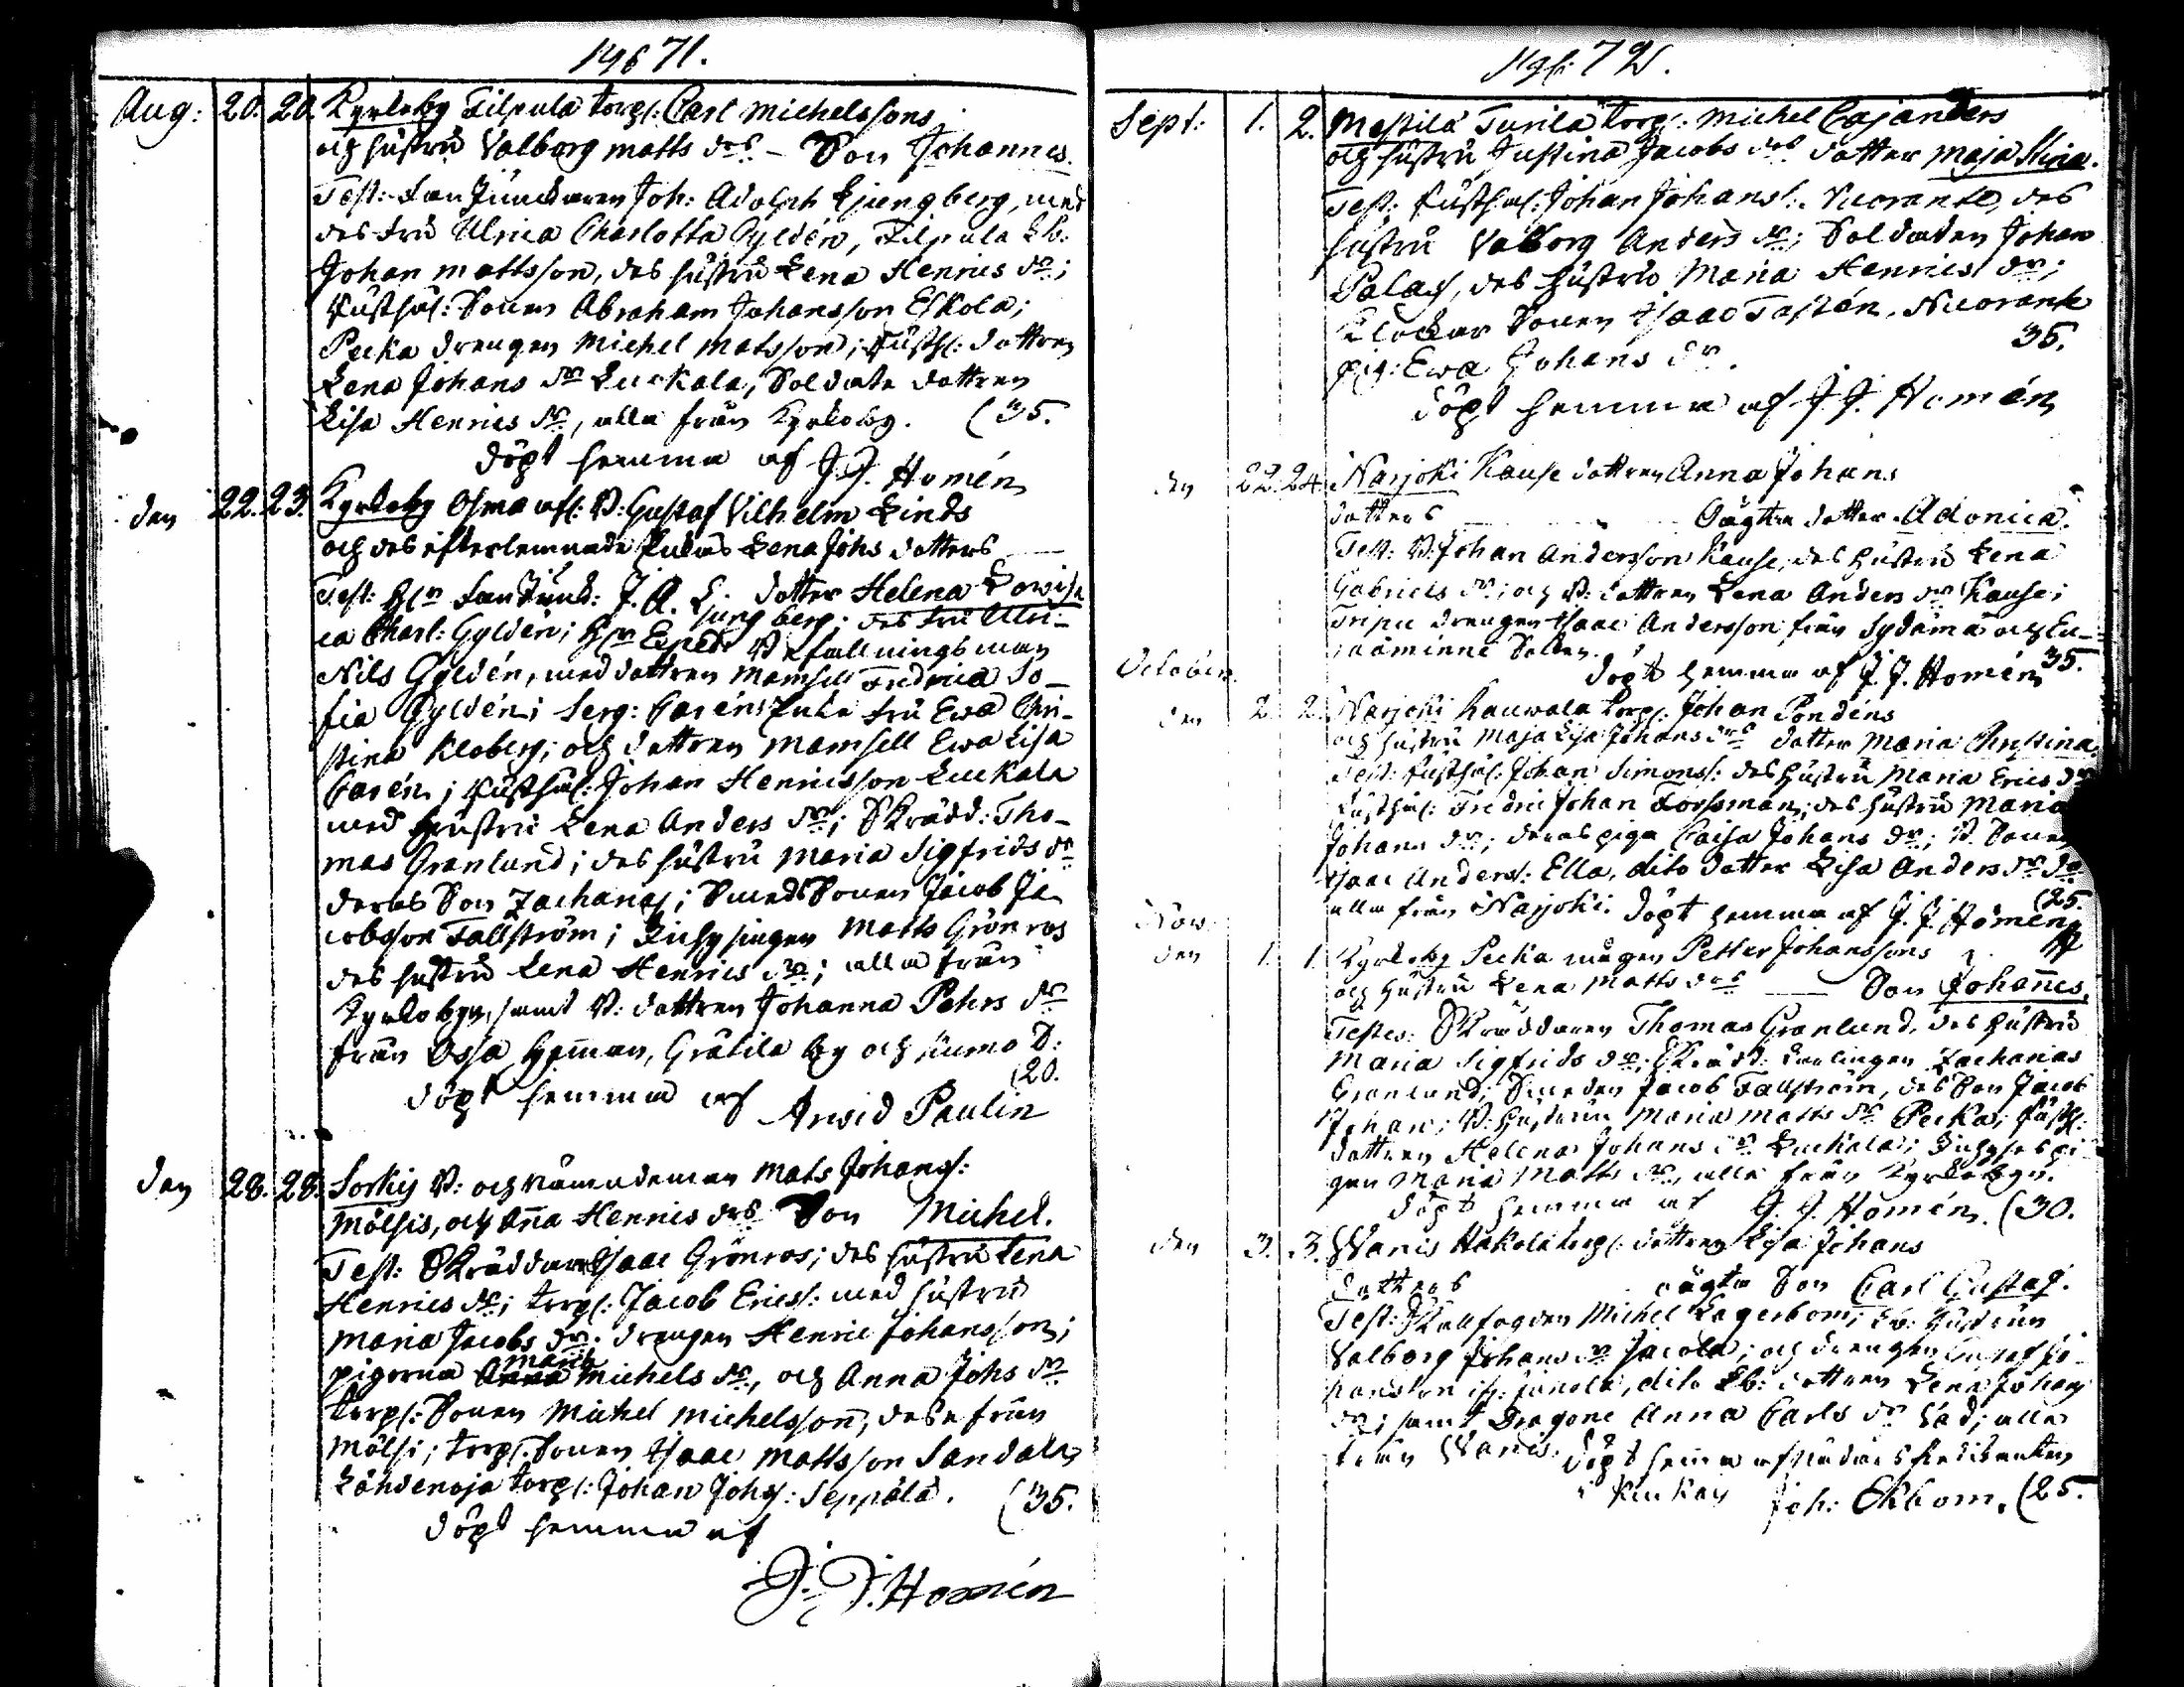 71.
Aug: 20. 20. Kyrkoby Filpula torp: Carl Michelssons
och hustru Valborg Matts drs – Son Johannes.
Test: Fanjunckaren Joh: Adolph Ljungberg, med
des fru Ulrica Charlotta Gyldén, Filpula Lb:
Johan Mattsson, des hustru Lena Henrics dr;
Rusthål: Sonen Abraham Johansson Eskola;
Pecka drengen Michel Matsson; Rusth: dottren
Lena Johans dr Luckala, Soldate dottren
Lisa Henrics dr, alla från Kyrkoby. (35.
döpt hemma af J. J. Homén
den 22. 23. Kyrkoby Osma afl: B: Gustaf Vilhelm Linds
och des efterlemnade Enkas Lena Johs dotters
dotter Helena Lovisa
Test: Hrn Fanjunk: J. A. Ljungberg; des fru Ulri-
ca Charl: Gyldén; Hrn Exped: Befallningsman
Nils Gyldén, med dottren Mamsell Fredrica So-
fia Gyldén; Serg: Caréns Enka fru Ewa Chri-
stina Kloberg; och dottren Mamsell Ewa Lisa
Carén; Rusthål: Johan Henricsson Luckala
med hustru Lena Anders dr; Skrädd: Tho-
mas Granlund; des hustru Maria Sigfrids dr
deras Son Zacharias; Smeds Sonen Jacob Ja-
cobsson Fallström; Matts Grönros
des hustru Lena Henrics dr; alla från
Kyrkobyn, samt B: dottren Johanna Pehrs dr
från Ossa Hemman, Gråtila by och Kumo S:
(20.
döpt hemma af Arvid Paulin
den 28. 28. Sorkis B: och Nämndeman Mats Johans:
Mölsis, och Anna Henrics drs Son Michel.
Test: Skräddaren Isaac Grönros; des hustru Lena
Henrics dr; torp: Jacob Erics: med hustru
Maria Jacobs dr. drengen Henric Johansson;
pigorna Maria Michels dr, och Anna Johs dr
torp: Sonen Michel Michelsson, desse från
Mölsi; torp: Sonen Isaac Mattsson Sandala
Lähdenoja torp: Johan Johs: Seppälä. (35.
döpt hemma af
J. J. Homén
72.
Sept: 1. 2. Mestilä Turila torp: Michel Cajanders
och hustru Justina Jacobs drs dotter Maja Stina.
Test: Rusthål: Johan Johans: Nuorante, des
hustru Valborg Anders dr; Soldaten Johan
Palas, des hustru Maria Henrics dr;
Klockar Sonen Isaac Tastén, Nuorante
pig: Ewa Johans dr. 35.
döpt hemma af J. J. Homén
den 22. 24. Narjoki Kause dottren Anna Johans
dotters oägta dotter Adonica.
Test: B: Johan Andersson Kause, des hustru Lena
Gabriels dr; och B: dottren Lena Anders dr Kause;
drengen Isaac Andersson från Sydämä och Eu-
raåminne Socken.
döpt hemma af J. J. Homén 35.
October
den 2. 2. Narjoki Kauwala torp: Johan Pondéns
och hustru Maja Lisa Johans drs dotter Maria Christina.
Test: Rusthål: Johan Simons: des hustru Maria Erics dr
Rusthål: Fredric Johan Forssman; des hustru Maria
Johans dr; deras piga Caisa Johans dr; B. Sonen
Isaac Anders: Ella, dito dotter Lisa Anders dr
alla från Narjoki. döpt hemma af J. J. Homén (25.
Nov.
den 1. 1. Kyrkoby Pecka mågen Petter Johanssons
och hustru Lena Matts drs — Son Johannes.
Testes: Skräddaren Thomas Granlund, des hustru
Maria Sigfrids dr; Skrädd: Zacharias
Granlund; Smeden Jacob Fallström, des Son Jacob
Johan; B: hustrun Maria Matts dr Pecka; Rusth:
dottren Helena Johans dr Luckala; pi-
gan Maria Matts dr, alla från Kyrkobyn.
döpt hemma af J. J. Homén. (30.
den 3. 3. Wanis Hakola torp: dottren Lisa Johans
dotters oägta Son Carl Gustaf.
Test: Skallfogden Michel Lagerbom; Lb: hustrun
Valborg Johans dr Jacola; och drengen Gustaf Jo-
hansson dito Lb: dottren Lena Johans
dr; samt Dragone Anna Carls dr Vad; alla
från Wanis. döpt hemma af
Joh: Ekbom. (25.